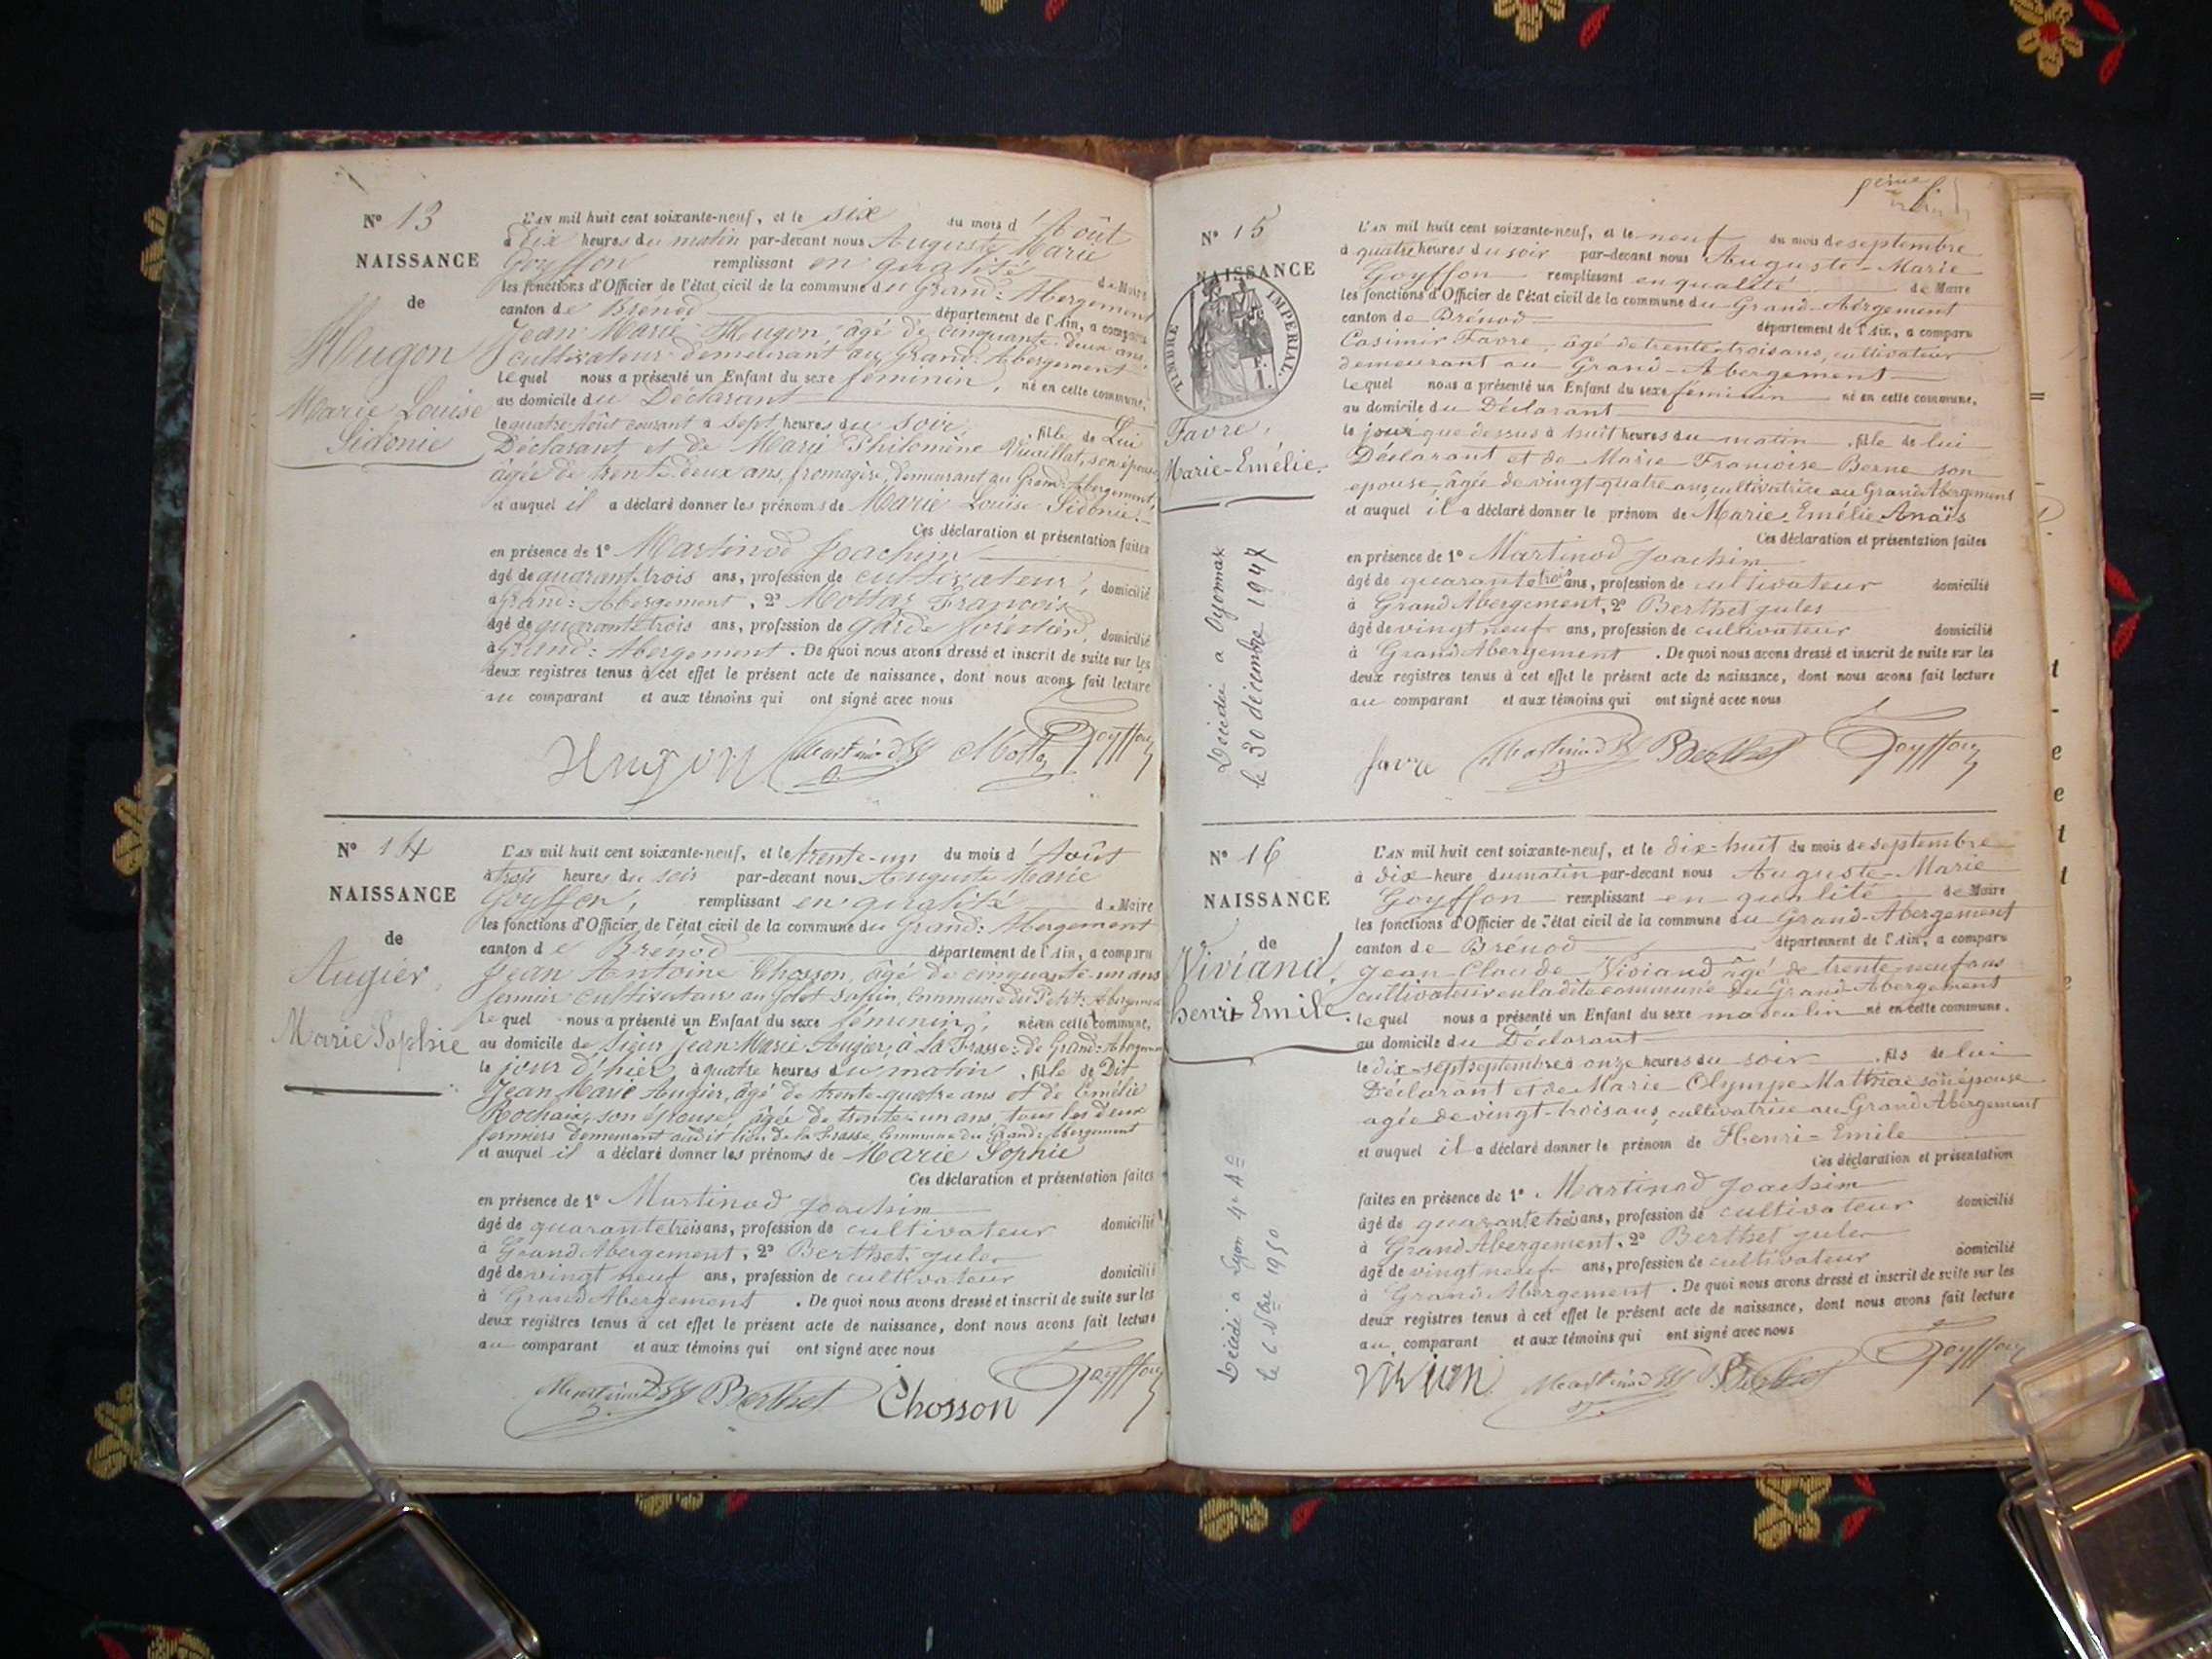 N° 13
NAISSANCE
de
Hugon
Marie Louise
Sidonie
L'AN mil huit cent soixante-neuf, et le six du mois d'Août
à dix heures du matin par-devant nous Auguste Marie
Goyffon remplissant en qualité de Maire
les fonctions d'Officier de l'état civil de la commune du Grand-Abergement
canton de Brénod département de l'Ain, a comparu
Jean Marie Hugon, âgé de cinquante-deux ans,
cultivateur demeurant au Grand-Abergement
lequel nous a présenté un Enfant du sexe féminin, né en cette commune,
au domicile du Déclarant
le quatre Août courant à sept heures du soir, fille de Lui
Déclarant et de Marie Philomène Vuaillat, son épouse
âgée de trente deux ans, fromagère, demeurant au Grand-Abergement
et auquel il a déclaré donner les prénoms de Marie Louise Sidonie.
Ces déclaration et présentation faites
en présence de 1° Martinod Joachim
âgé de quarante trois ans, profession de cultivateur, domicilié
à Grand-Abergement, 2° Mottaz François
âgé de quarante trois ans, profession de garde forestier, domicilié
à Grand-Abergement. De quoi nous avons dressé et inscrit de suite sur les
deux registres tenus à cet effet le présent acte de naissance, dont nous avons fait lecture
au comparant et aux témoins qui ont signé avec nous
Hugon Martinod Motta Goyffon
N° 14
NAISSANCE
de
Augier,
Marie Sophie
L'AN mil huit cent soixante-neuf, et le trente-un du mois d'Août
à trois heures du soir par-devant nous Auguste Marie
Goyffon, remplissant en qualité de Maire
les fonctions d'Officier de l'état civil de la commune du Grand-Abergement
canton de Brénod département de l'Ain, a comparu
Jean Antoine Chosson, âgé de cinquante-un ans
fermier cultivateur au Golet Sapin, Commune du Petit-Abergement
lequel nous a présenté un Enfant du sexe féminin, né en cette commune,
au domicile de Sieur Jean Marie Augier, à La Frasse de Grand-Abergement
le jour d'hier à quatre heures du matin, fille de Dit
Jean Marie Augier, âgé de trente-quatre ans et de Emélie
Rochaix, son épouse, âgée de trente-un ans, tous les deux
fermiers demeurant audit lieu de la Frasse, Commune du Grand-Abergement
et auquel il a déclaré donner les prénoms de Marie Sophie
Ces déclaration et présentation faites
en présence de 1° Martinod Joachim
âgé de quarante trois ans, profession de cultivateur domicilié
à Grand Abergement, 2° Berthet jules
âgé de vingt neuf ans, profession de cultivateur domicilié
à Grand Abergement. De quoi nous avons dressé et inscrit de suite sur les
deux registres tenus à cet effet le présent acte de naissance, dont nous avons fait lecture
au comparant et aux témoins qui ont signé avec nous
Martinod Berthet Chosson Goyffon
N° 15
NAISSANCE
TIMBRE IMPERIAL.
Favre,
Marie-Emélie.
Décédée a Oyonnax
le 30 décembre 1947
L'AN mil huit cent soixante-neuf, et le neuf du mois de septembre
à quatre heures du soir par-devant nous Auguste-Marie
Goyffon remplissant en qualité de Maire
les fonctions d'Officier de l'état civil de la commune du Grand-Abergement
canton de Brénod département de l'Ain, a comparu
Casimir Favre, âgé de trente-trois ans, cultivateur
demeurant au Grand-Abergement
lequel nous a présenté un Enfant du sexe féminin né en cette commune,
au domicile du Déclarant
le jour que dessus à huit heures du matin, fille de lui
Déclarant et de Marie Francoise Berne son
epouse âgée de vingt-quatre ans cultivatrice au Grand Abergement
et auquel il a déclaré donner le prénom de Marie-Emélie-Anaïs
Ces déclaration et présentation faites
en présence de 1° Martinod Joachim
âgé de quarante trois ans, profession de cultivateur domicilié
à Grand Abergement, 2° Berthet jules
âgé de vingt neuf ans, profession de cultivateur domicilié
à Grand Abergement. De quoi nous avons dressé et inscrit de suite sur les
deux registres tenus à cet effet le présent acte de naissance, dont nous avons fait lecture
au comparant et aux témoins qui ont signé avec nous
favre Martinod Berthet Goyffon
N° 16
NAISSANCE
de
Viviand,
henri-Emile.
Décédé a Lyon 4e
le 6 1950
L'AN mil huit cent soixante-neuf, et le dix-huit du mois de septembre
à dix heure du matin par-devant nous Auguste-Marie
Goyffon remplissant en qualité de Maire
les fonctions d'Officier de l'état civil de la commune du Grand-Abergement
canton de Brénod département de l'Ain, a comparu
Jean-Claude Viviand âgé de trente-neuf ans
cultivateur en ladite commune du Grand-Abergement
lequel nous a présenté un Enfant du sexe masculin né en cette commune,
au domicile du Déclarant
le dix-sept septembre à onze heures du soir, fils de lui
Déclarant et de Marie Olympe son épouse
agée de vingt-trois ans, cultivatrice au Grand Abergement
et auquel il a déclaré donner le prénom de Henri-Emile
Ces déclaration et présentation
faites en présence de 1° Martinod Joachim
âgé de quarante trois ans, profession de cultivateur domicilié
à Grand Abergement, 2° Berthet jules
âgé de vingt neuf ans, profession de cultivateur domicilié
à Grand Abergement. De quoi nous avons dressé et inscrit de suite sur les
deux registres tenus à cet effet le présent acte de naissance, dont nous avons fait lecture
au comparant et aux témoins qui ont signé avec nous
Martinod Berthet Goyffon